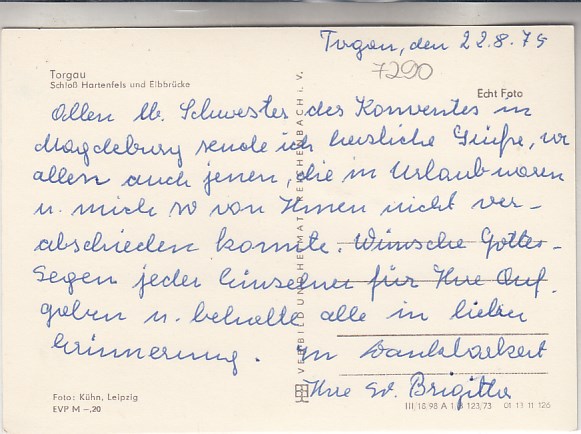 Torgau, den 22.8.75
7290
Torgau
Schloß Hartenfels und Elbbrücke
Echt Foto
Allen lb. Schwester des Konventes in
Magdeburg sende ich herzliche Grüße, vor
allem auch jenen, die in Urlaub waren
u. mich so von Ihnen nicht ver-
abschieden konnte. Wünsche Gottes-
Segen jeder Einzelnen für Ihre Auf-
gaben u. behalte alle in lieber
Erinnerung. In Dankbarkeit
Ihre Sr. Brigitta
VERBILD UND HEIMAT REICHENBACH i. V.
Foto: Kühn, Leipzig
EVP M –,20
III/18 98 A 1 123/73 01 13 11 126